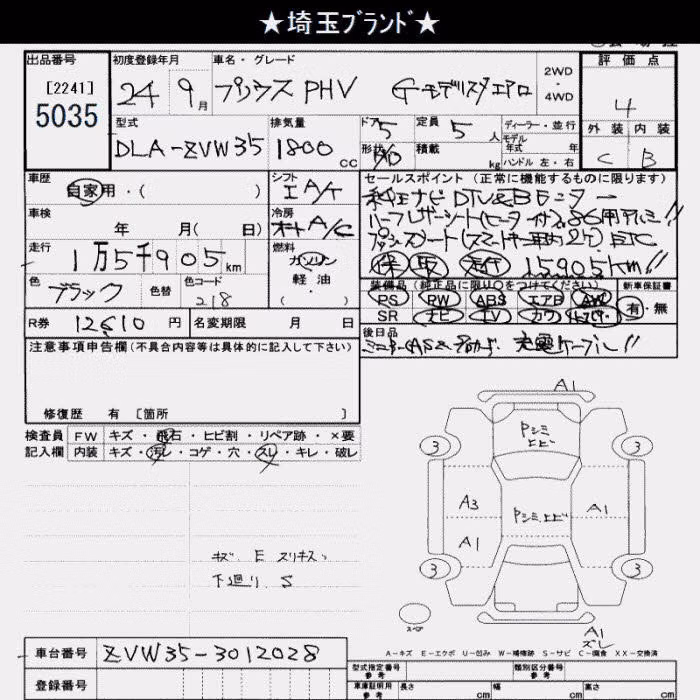 ★埼玉ブランド★
出品番号 初度登録年月 車名・グレード 2WD・4WD 評価点
[2241]
5035
24 9月 プリウス PHV Gモデリスタエアロ 4
型式 排気量 ドア 定員 ディーラー・並行 外装 内装
DLA-ZVW35 1800cc 5 5人 モデル年式 年 C B
形状 積載 kg ハンドル 左・右
車歴 シフト セールスポイント(正常に機能するものに限ります)
自家用・( ) IA/T 純正ナビDTV&Bモニター
車検 冷房 ハーフレザーシート(ヒーター付)
年 月( 日) A/C ETC
走行 燃料
1万5千905km ガソリン 保 取 15905km!!
色 色替 色コード 軽油・( ) 装備品(純正品に限り○をつけてください) 新車保証書
ブラック 218 PS PW ABS エアB AW 有・無
SR ナビ TV カワ
R券 12610円 名変期限 月 日 後日品
注意事項申告欄(不具合内容等は具体的に記入して下さい) 充電ケーブル!!
修復歴 有 [箇所 ]
検査員 FW キズ・飛石・ヒビ割・リペア跡・×要
記入欄 内装 キズ・汚レ・コゲ・穴・スレ・キレ・破レ
A1
Pシミエビ
3 3
A3 Pシミ.エビ A1
A1
3 3
キズ. E スリキズ
下廻り S
スペア
A1
ズレ
A-キズ E-エクボ U-凹み W-補修跡 S-サビ C-腐食 XX-交換済
車台番号 ZVW35-3012028
登録番号
型式指定番号 参考 類別区分番号 参考
車庫証明用 参考 長さ cm 幅 cm 高さ cm